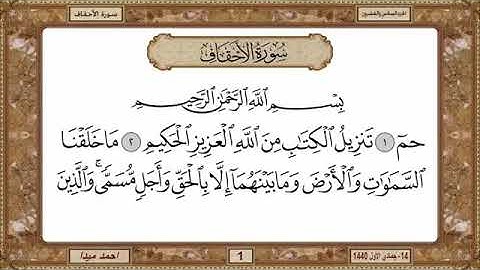 سورة الأحقاف
الجزء السادس والعشرون
سُورَةُ الأَحْقَافِ
بِسْمِ اللَّهِ الرَّحْمَٰنِ الرَّحِيمِ
حمٓ ١ تَنزِيلُ الْكِتَابِ مِنَ اللَّهِ الْعَزِيزِ الْحَكِيمِ ٢ مَا خَلَقْنَا
السَّمَاوَاتِ وَالْأَرْضَ وَمَا بَيْنَهُمَا إِلَّا بِالْحَقِّ وَأَجَلٍ مُّسَمًّى ۚ وَالَّذِينَ
احمد ميدا
1
14- جمادى الاول 1440